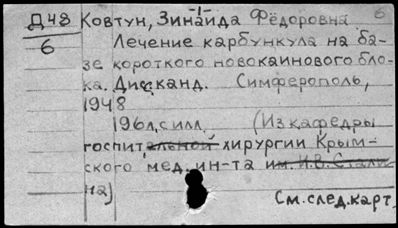 -1-
Д48 Ковтун, Зинаида Фёдоровна 6
6 Лечение карбункула на ба-
зе короткого новокаинового бло-
ка. Дисс. канд. Симферополь,
1948
196л, с илл. (Из кафедры
госпитальной хирургии Крым-
ского мед. ин-та им. И.В. Стали
на)
См. след. карт.